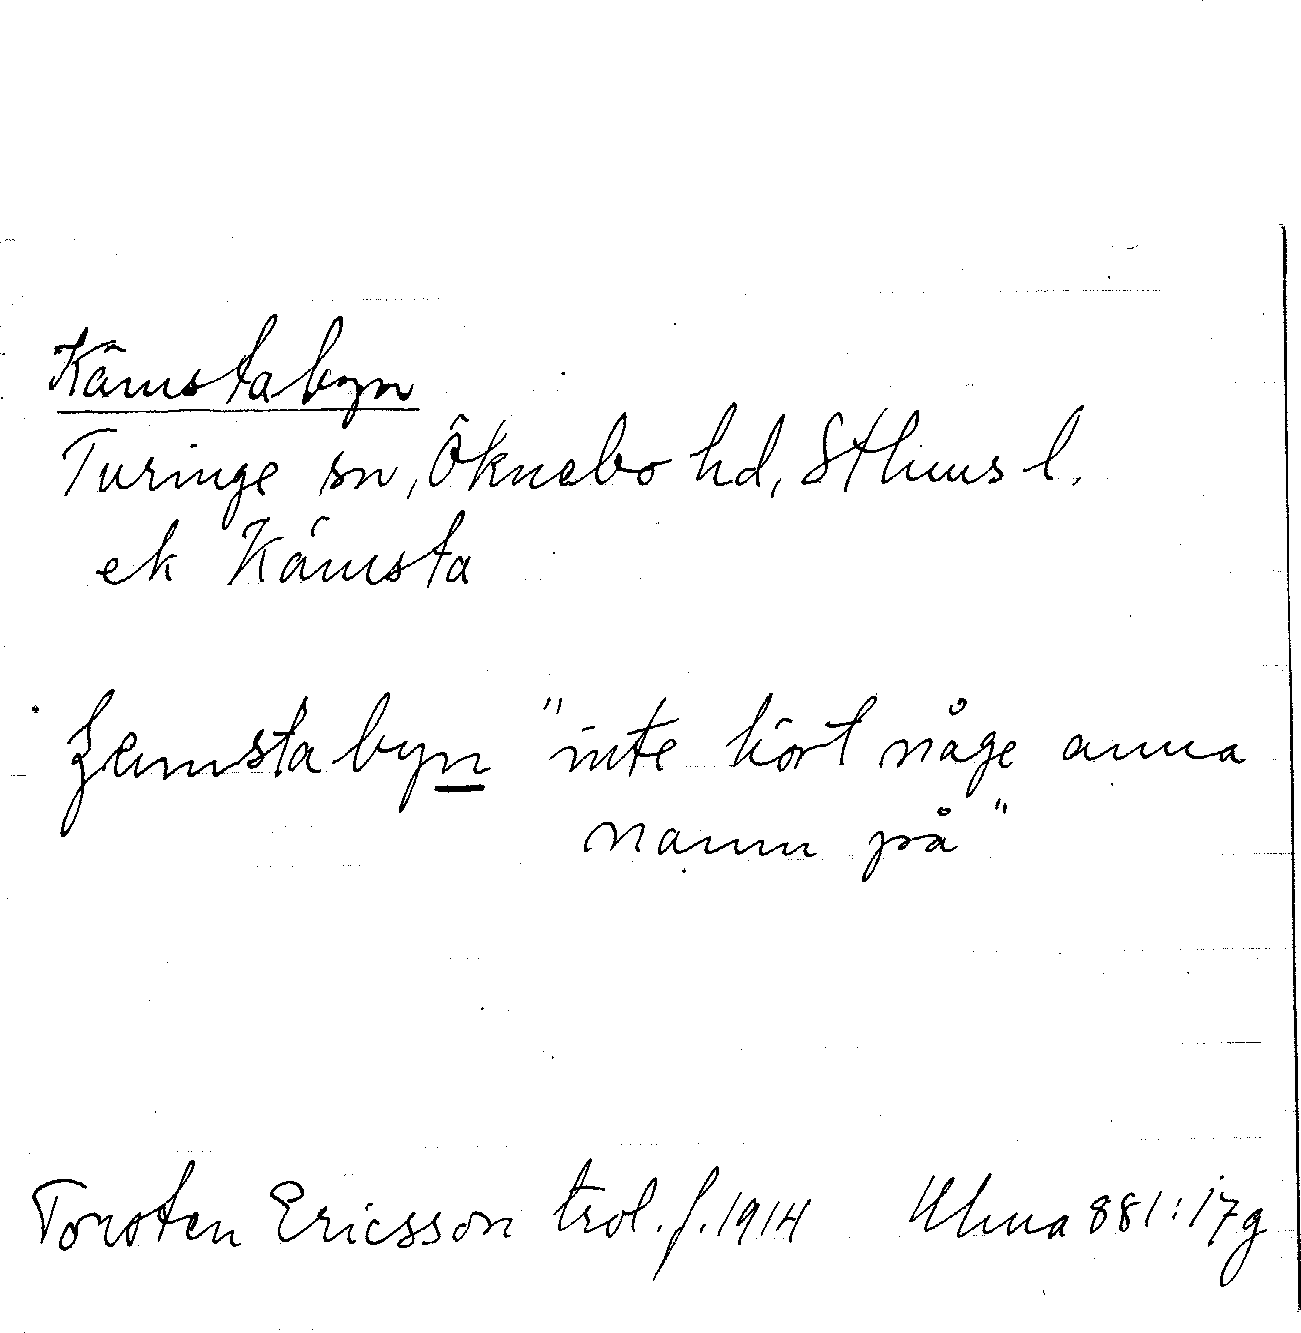 Kämstabyn
Turinge sn, Öknebo hd, Sthms l.
ek Kämsta
ʒemstabyn "inte hört någe anna
namn på"
Torsten Ericsson trol. f. 1914 Ulma 881:17g